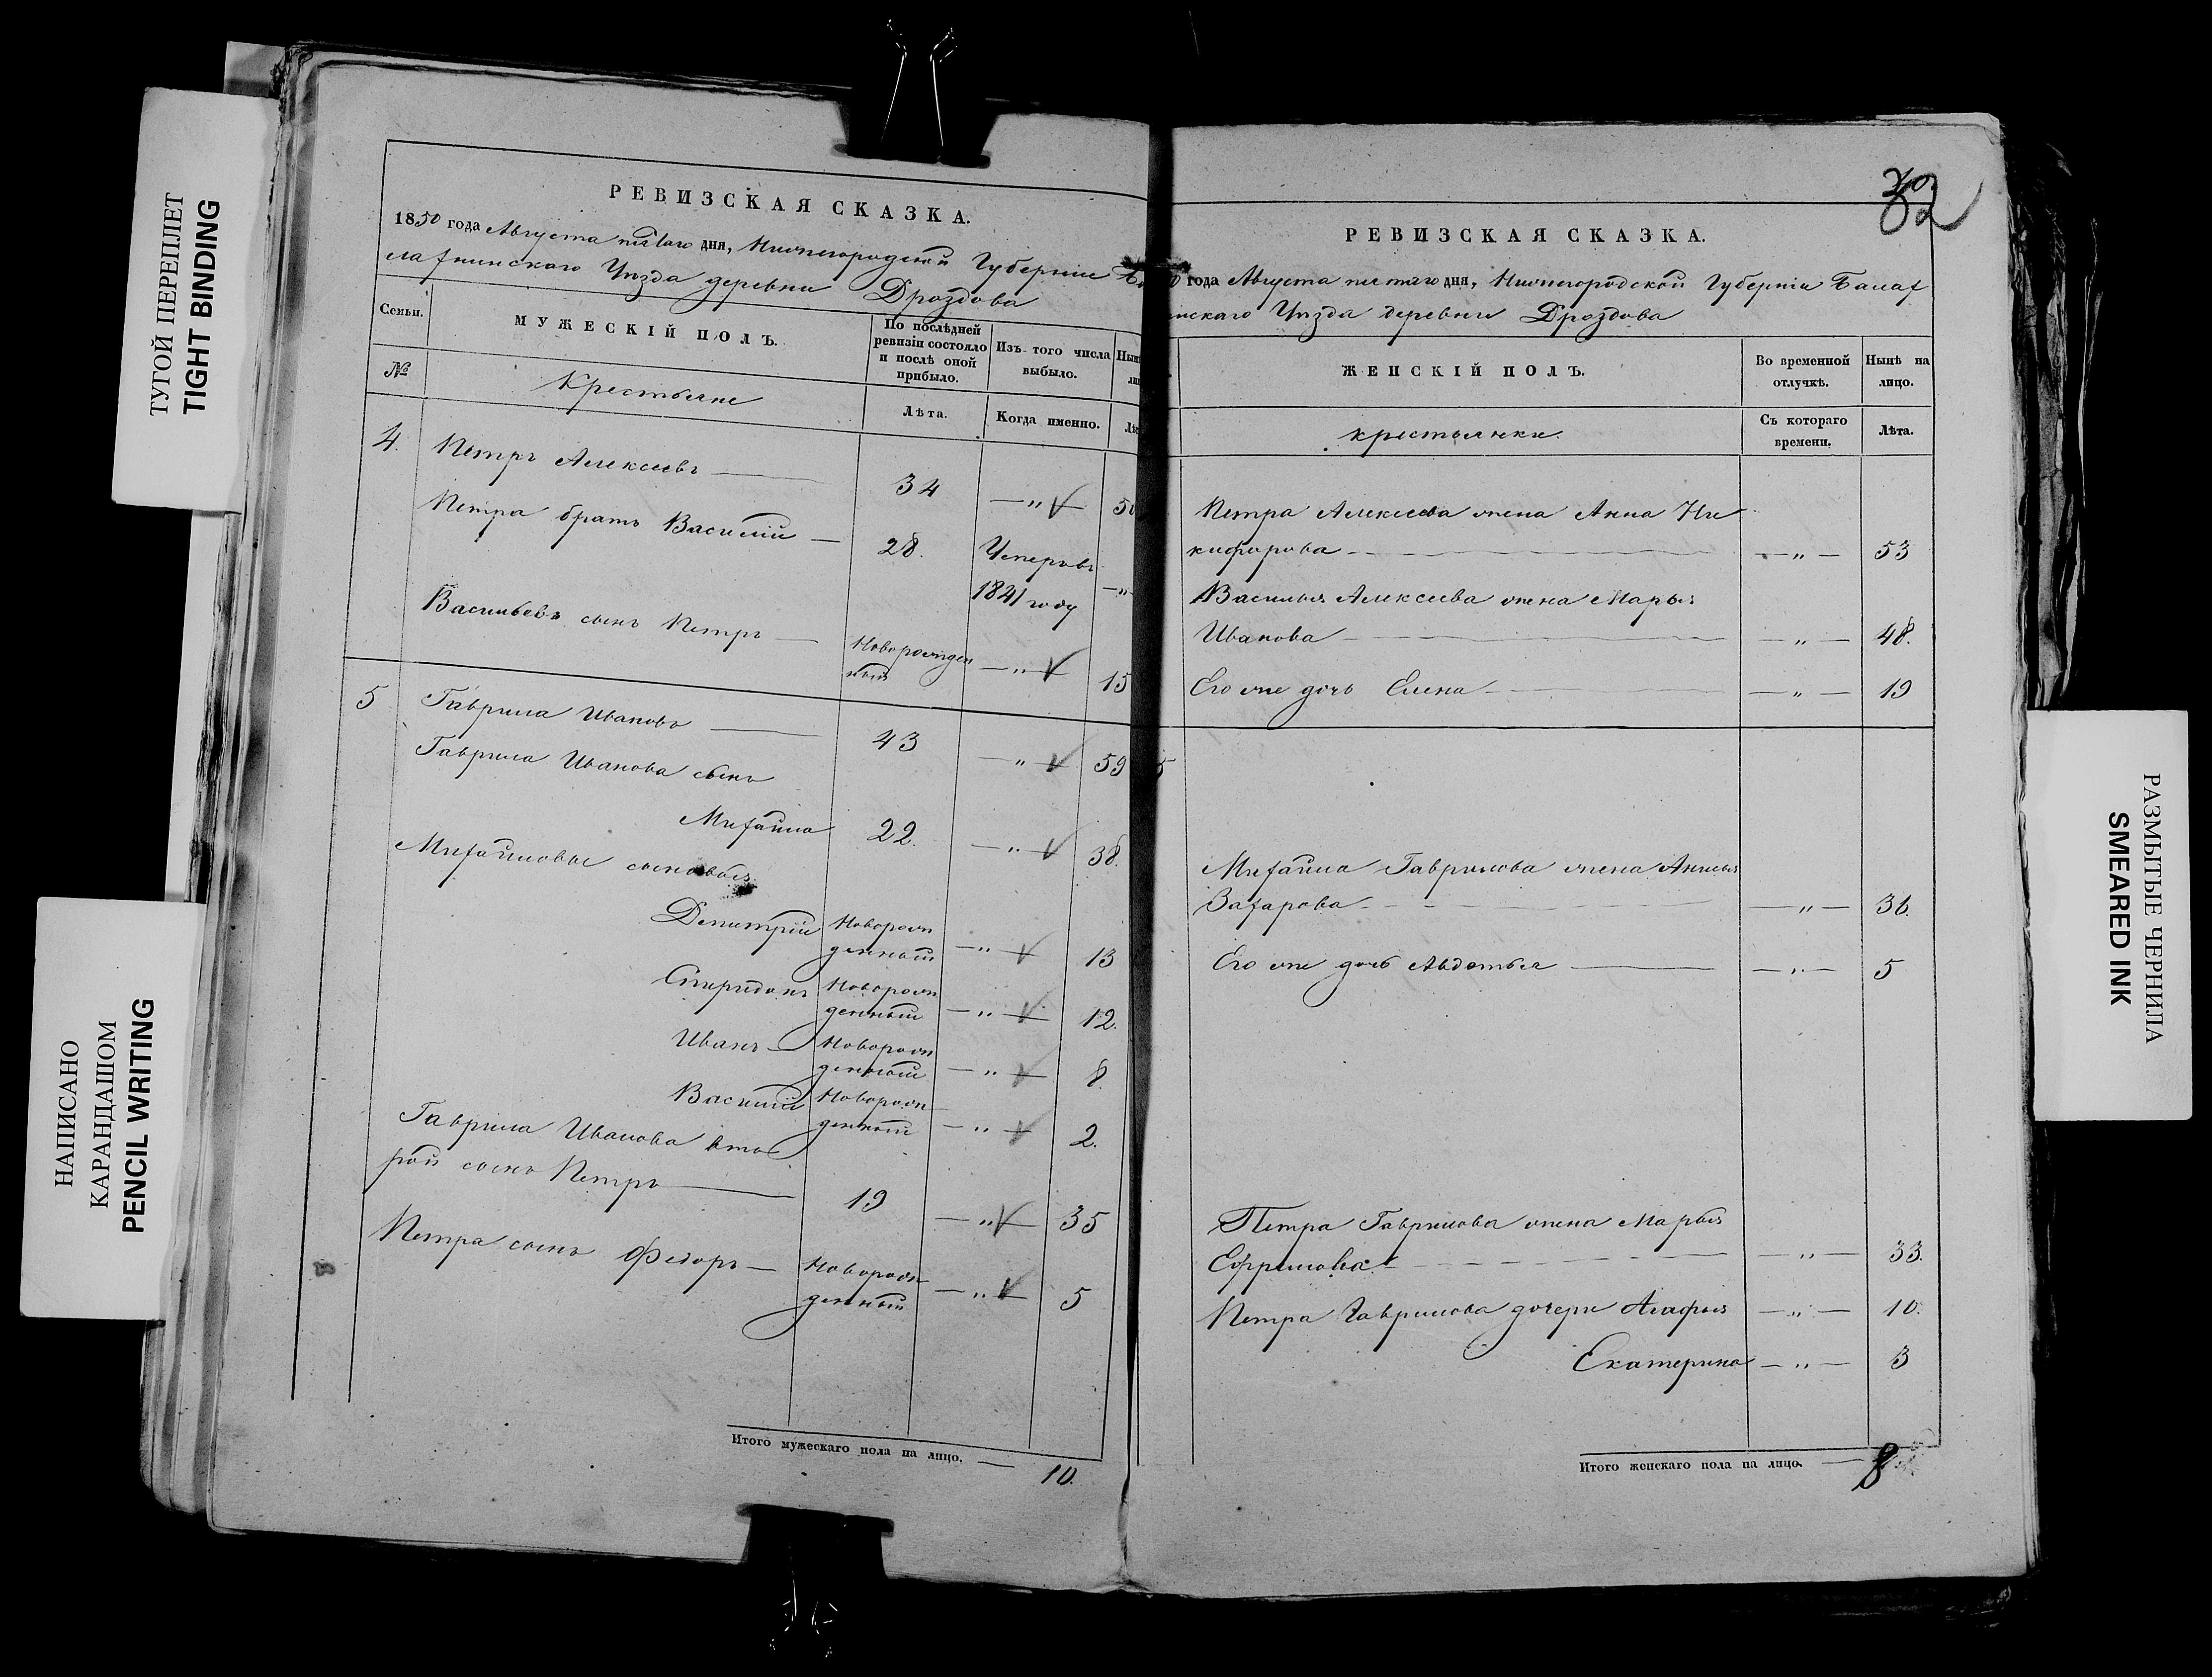 ТУГОЙ ПЕРЕПЛЕТ
TIGHT BINDING
НАПИСАНО
КАРАНДАШОМ
PENCIL WRITING
РЕВИЗСКАЯ СКАЗКА.
1850 года Августа пятаго дня, Нижегородской Губерніи Ба
лахнинскаго Уѣзда деревни Дроздова
Семьи.
МУЖЕСКІЙ ПОЛЪ.
По послѣдней
ревизіи состояло
и послѣ оной
прибыло.
Изъ того числа
выбыло.
№
Крестьяне
Лѣта.
Когда именно.
4.
Петръ Алексеевъ
34
— " —
Петра братъ Василій —
28.
Умеръ въ
1841 году
— "
Васильевъ сынъ Петръ —
Новорожден
ный
— " —
15
5
Гаврила Ивановъ
43
— " —
59
Гаврила Иванова сынъ
Михайла
22.
— " —
38.
Михайловы сыновья
Дмитрій
Новорож
денный
— " —
13
Спиридонъ
Новорож
денный
— " —
12.
Иванъ —
Новорож
денный
— " —
8.
Василій
Новорож
денный
— " —
2.
Гаврила Иванова вто
рой сынъ Петръ
19
— " —
35
Петра сынъ Федоръ —
Новорож
денный
— " —
5
Итого мужескаго пола на лицо. — 10.
32
РЕВИЗСКАЯ СКАЗКА.
года Августа пятаго дня, Нижегородской Губерніи Балах
нскаго Уѣзда деревни Дроздова
ЖЕНСКІЙ ПОЛЪ.
Во временной
отлучкѣ.
Нынѣ на
лицо.
крестьянки.
Съ котораго
времени.
Лѣта.
Петра Алексеева жена Анна Ни
кифорова — " — 53
Василья Алексеева жена Марья
Иванова — " — 48.
Его же дочь Елена — " — 19
5
Михайла Гаврилова жена Анисья
Захарова — " — 36.
Его же дочь Авдотья — " — 5
Петра Гаврилова жена Марья
Ефримова — " — 33.
Петра Гаврилова дочери Агафья — " — 10.
Екатерина — " — 3
Итого женскаго пола на лицо. — 8
РАЗМЫТЫЕ ЧЕРНИЛА
SMEARED INK